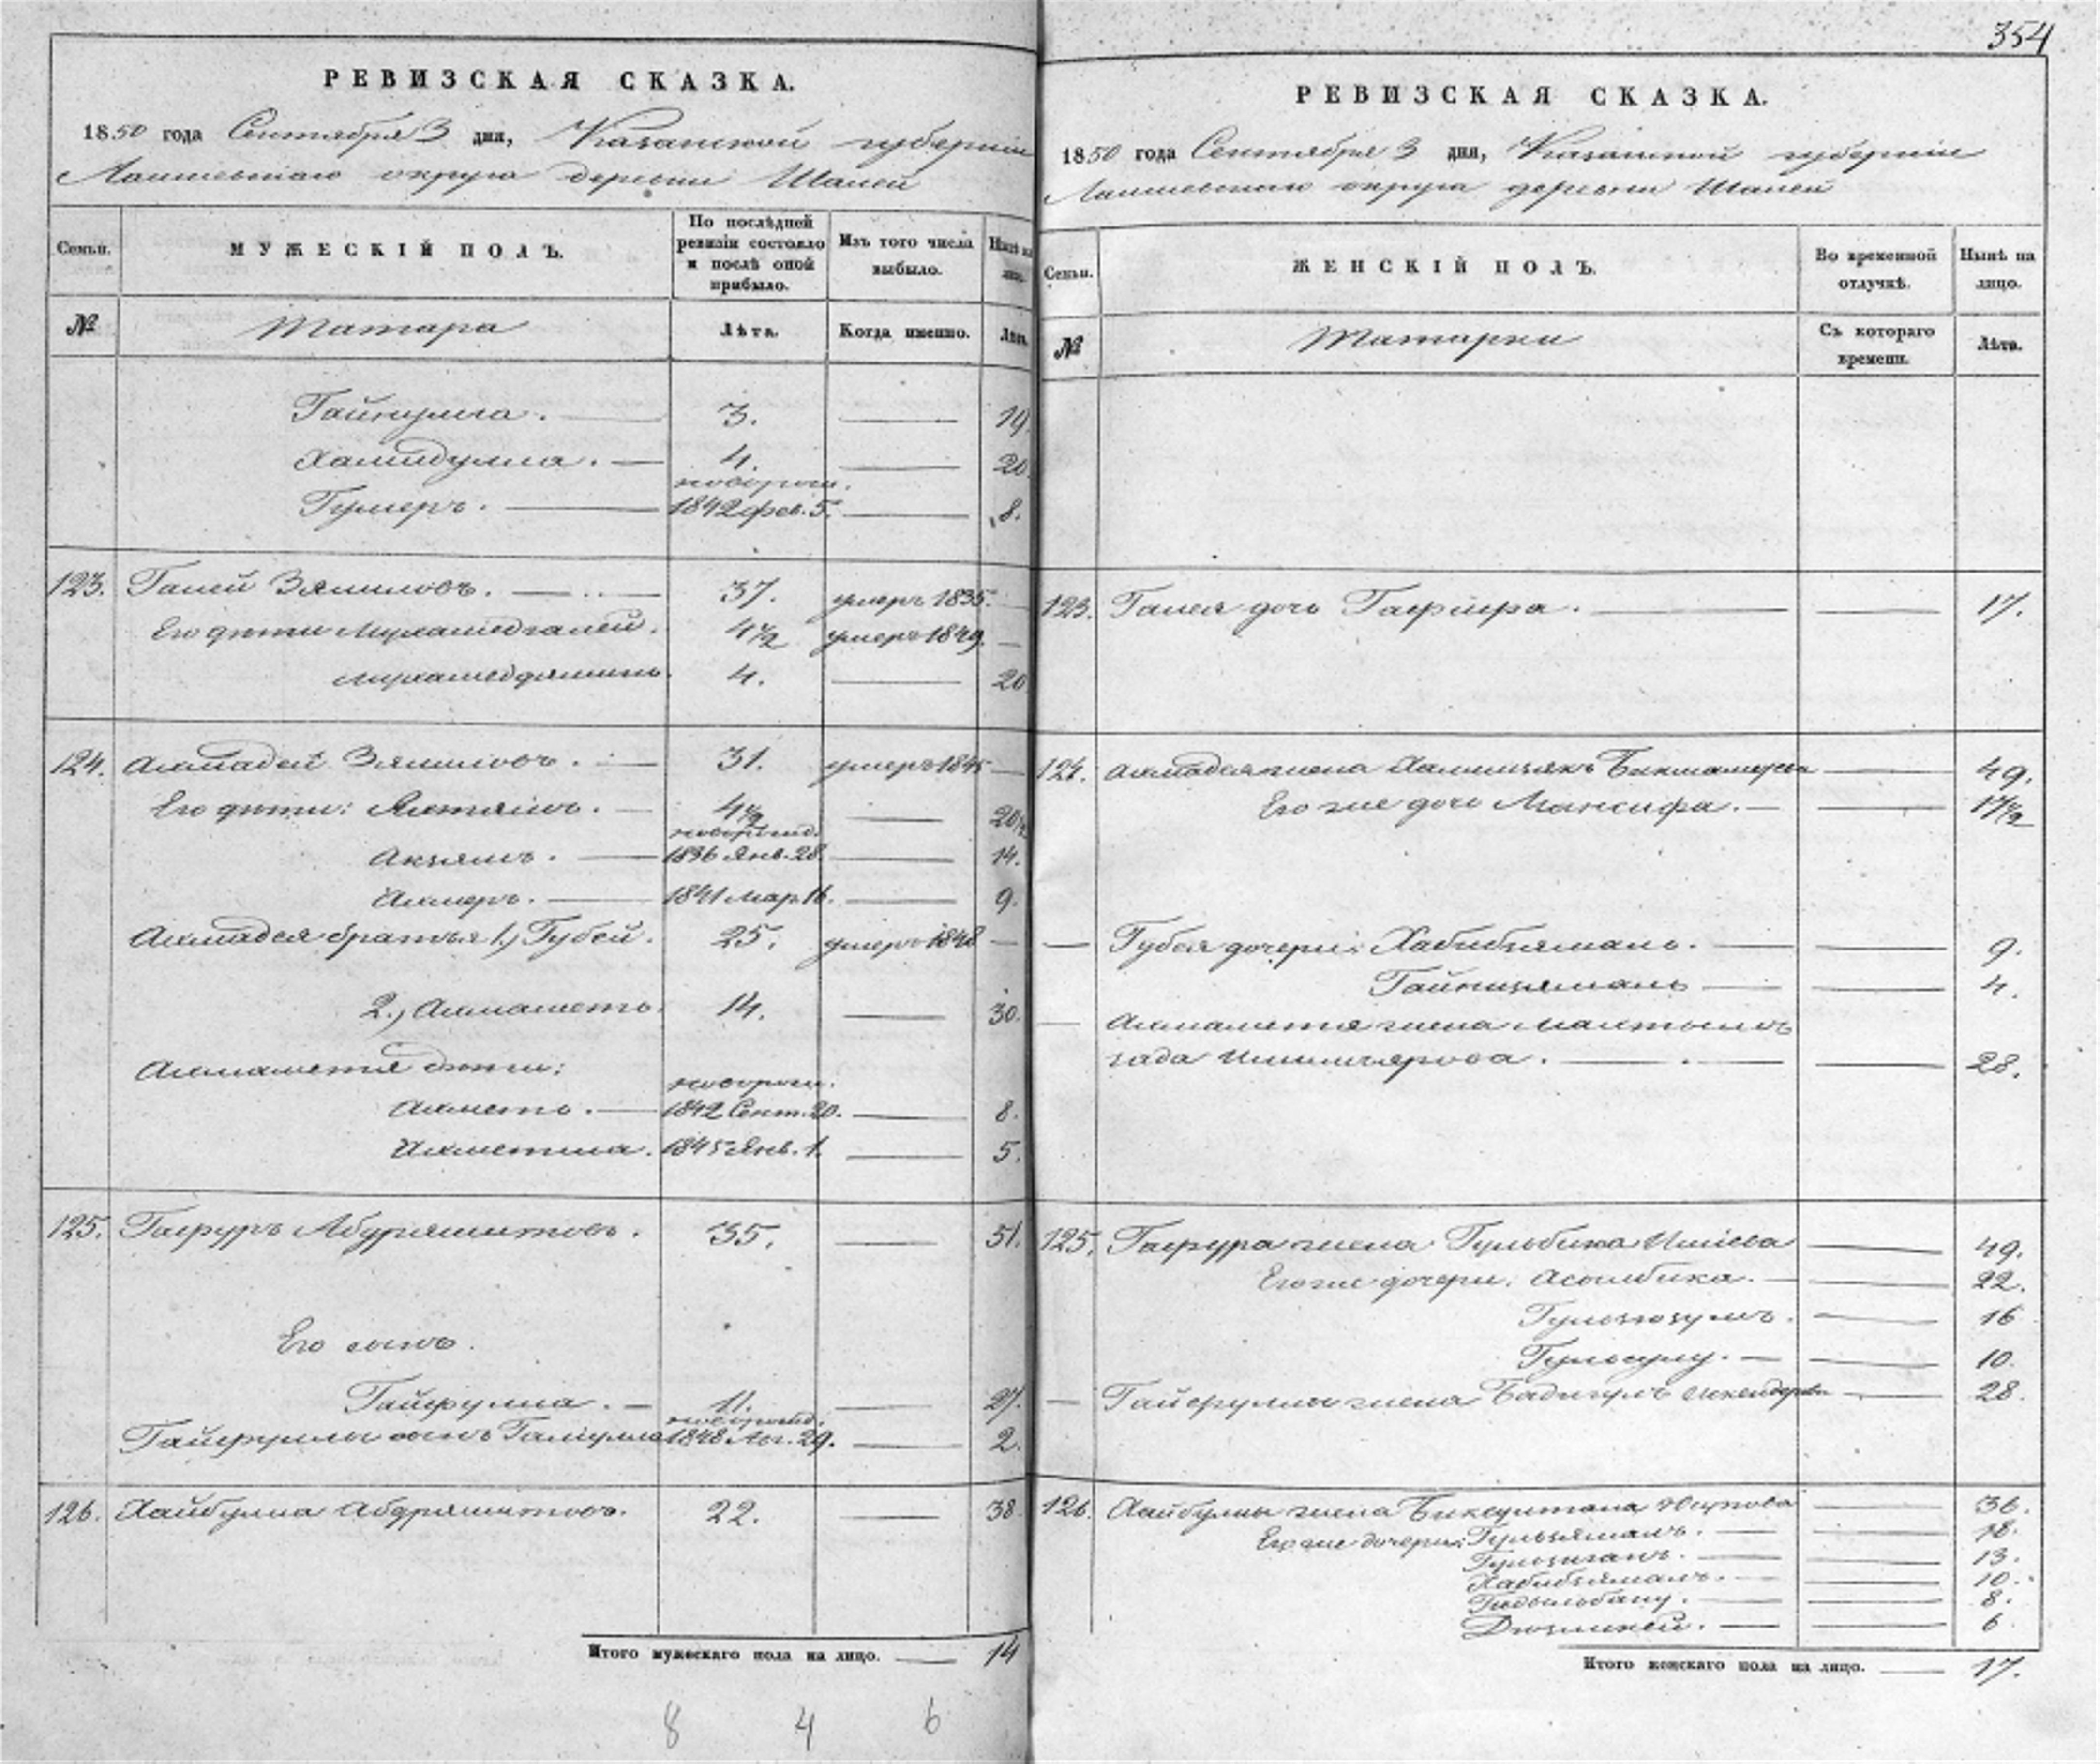 354
РЕВИЗСКАЯ СКАЗКА.
1850 года Сентября 3 дня, Казанской губернии
Лаишевскаго округа деревни Шалей
Семьи.
МУЖЕСКІЙ ПОЛЪ.
По послѣдней ревизіи состояло и послѣ оной прибыло.
Изъ того числа выбыло.
Нынѣ на лицо.
№
Татара
Лѣта.
Когда именно.
Лѣта.
Гайнулла. 3. — 19
Хамидулла. 4. — 20
новорож.
Гумеръ. 1842 фев. 5. — 8.
123. Галей Зямиловъ. 37. умеръ 1835. —
Его дѣти Мухаметгалей. 4½ умеръ 1849. —
Мухаметдяминъ. 4. — 20
124. Ахмадей Зямиловъ. 31. умеръ 1845 —
Его дѣти: 4½ — 20½
новорожд.
Акзямъ. 1836 Янв. 28. — 14.
1841 Мар. 16. — 9.
Ахмадея братья 1.) Губей. 25. умеръ 1848 —
2.) Ахмаметъ. 14. — 30.
Ахмаметя дѣти:
новорож.
Ахметъ. 1842 Сент. 20. — 8.
1845 Янв. 1. — 5.
125. Гафуръ Абдряшитовъ. 35. — 51.
Его сынъ.
Гайфулла. 11. — 27.
новорожд.
Гайфуллы сынъ Галіулла 1848 Авг. 29. — 2.
126. Хайбулла Абдряшитовъ. 22. — 38
Итого мужескаго пола на лицо. — 14
8 4 6
РЕВИЗСКАЯ СКАЗКА.
1850 года Сентября 3 дня, Казанской губерніи
Лаишевскаго округа деревни Шалей
Семьи.
ЖЕНСКІЙ ПОЛЪ.
Во временной отлучкѣ.
Нынѣ на лицо.
№
Татарки
Съ котораго времени.
Лѣта.
123. Галея дочь Гафира. — 17.
124. Ахмадея жена — 49.
Его же дочь Мансифа. — 17½
— Губея дочери: Хабибзямалъ. — 9.
Гайнизямалъ — 4.
— Ахмаметя жена
28.
125. Гафура жена Гульбика — 49.
Его же дочери: Асылбика. — 22.
16
10.
— Гайфуллы жена Бадигулъ — 28.
126. Хайбуллы жена Биксултана Юсупова — 36.
Его же дочери: Гульзямалъ. — 18.
Гульжиганъ. — 13.
Хабибзямалъ. — 10.
8.
6
Итого женскаго пола на лицо. — 17.